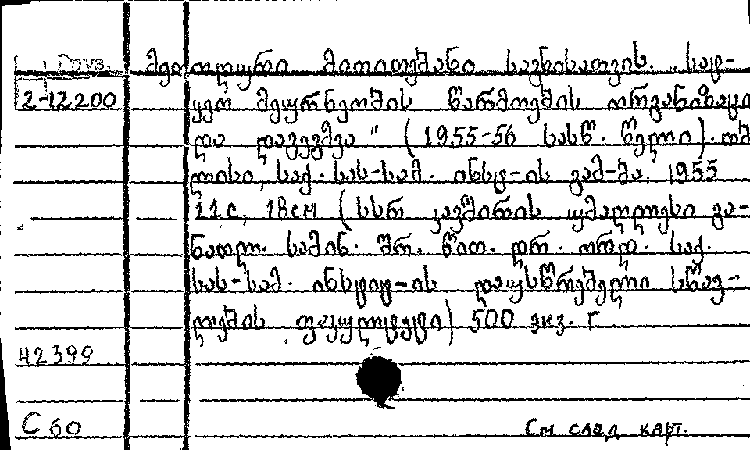 მეთოდური მითითებანი საგნისათვის „სატ-
2-12200 ყეო მეურნეობის წარმოების ორგანიზაცი
და დაგეგმვა" (1955-56 სასწ. წელი). თბ
ილისი, საქ. სას-სამ. ინსტ-ის გამ-მა, 1955
11с, 18см (სსრ კავშირის უმაღლესი გა-
ნათლ. სამინ. შრ. წით. დრ. ორდ. საქ.
სას-სამ. ინსტიტ-ის დაუსწრებელი სწავ-
ლების ფაკულტეტი) 500 ეკზ. Г
42399
С 60 См след карт.